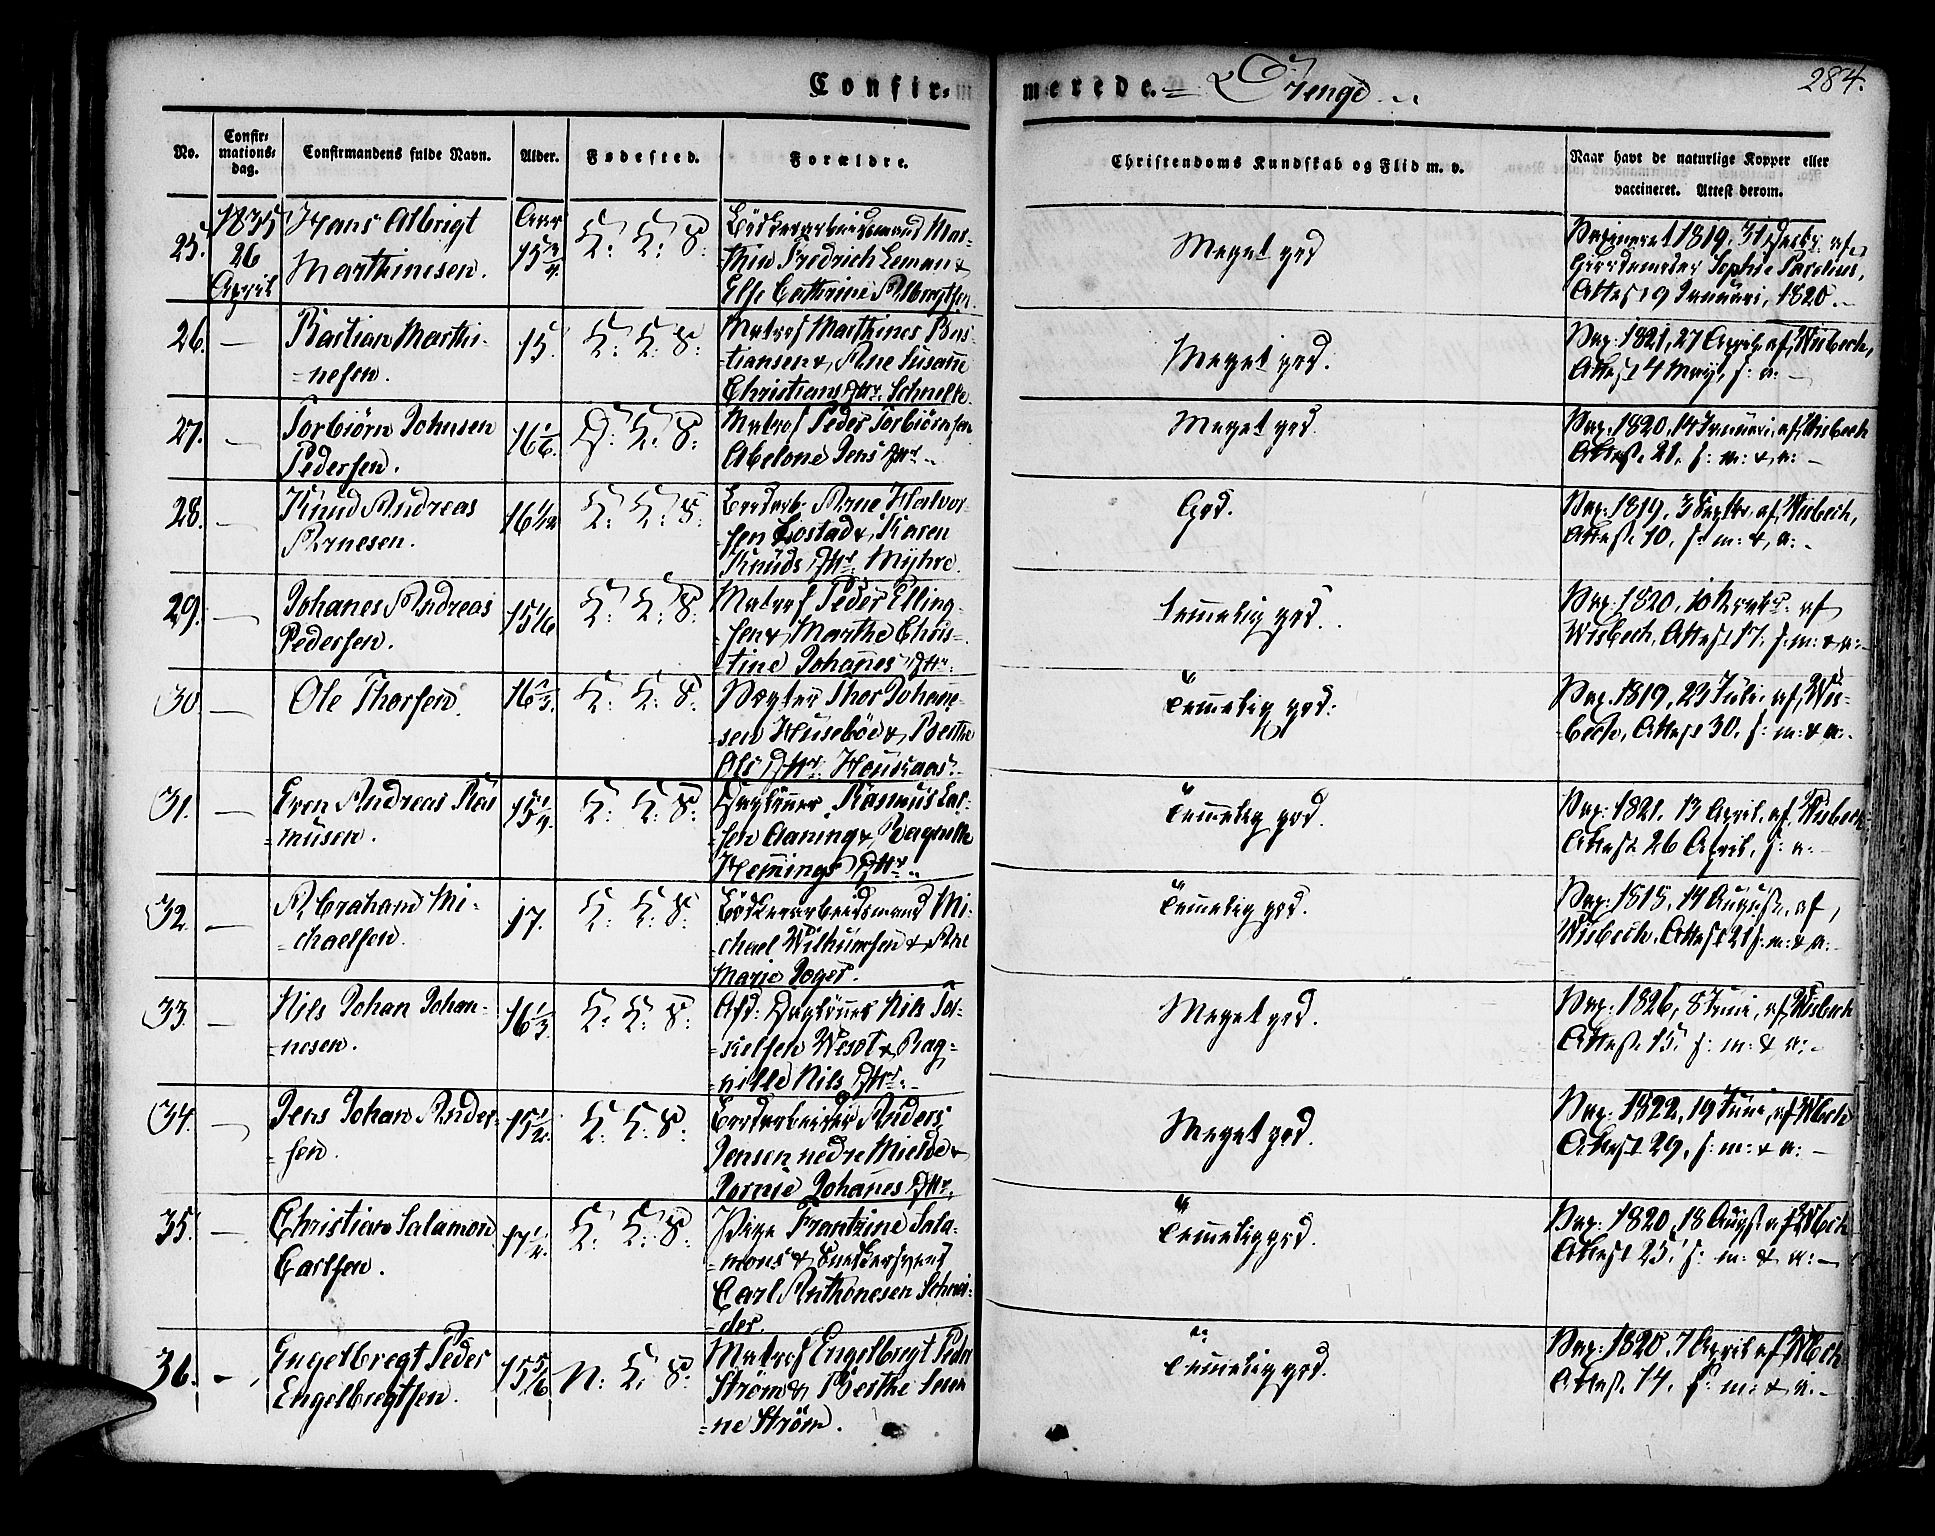 Confirmerede = Drenge
284.
No.
Confirmationsdag.
Confirmandens fulde Navn.
Alder.
Fødested.
Forældre.
Christendoms Kundskab og Flid m. v.
Naar havt de naturlige Kopper eller
vaccineret. Attest derom.
25.
1835
26
April
Hans Albrigt
Marthinesen.
Aar
15 3/4
K: K: S:
Mar-
thin Fredrich Leman &
Else Cathrine Albregtsen
Meget god
1819, 31 Decbr af
Sophie
Attest 9 Januari, 1820.
26. —
Bastian Marthi-
=nesen.
15.
K: K: S:
Matros Marthines Bas-
tiansen & Ane Susane
Christians Dtr. Schnelle
Meget god.
Vac: 1821, 27 April af Wisbech,
Attest 4 May, s: a: —
27. —
Torbiørn Johnsen
Pedersen.
16 1/6.
D: K: S:
Matros Peder Torbiørnsen
Abelone Jens Dtr
Meget god
Vac: 1820, 14 Januari, af Wisbech
Attest 21. s: m: & a: —
28. —
Knud Andreas
Arnesen.
16 1/12
K: K: S:
Arne Halvor-
sen Lostad & Karen
Knuds Dtr. Myhre.
God.
Vac: 1819, 3 Septbr. af Wisbech,
Attest 10, s: m: & a: -
29. —
Johanes Andreas
Pedersen.
15 1/6
K: K: S:
Matros Peder Elling-
=sen & Marthe Chris-
=tine Johanes Dtr.
Temelig god.
Vac: 1820, 10 af
Wisbech, Attest 17. s: m: & a: -
30. —
Ole Thorsen.
16 1/3.
K: K: S:
Thor Johane-
=sen Husebøe & Berthe
Ols Dtr.
Temelig god:
Vac: 1819, 23 Juli af Wis-
=bech, Attest 30. s: m: & a: -
31. —
Even Andreas Ras
=musen.
15 1/4.
K: K: S:
Dagløner Rasmus
sen Aaning & Ragnille
Hemings Dtr.
Temelig god.
Vac: 1821. 13 April, af Wisbech
Attest 26 April, s: a: —
32. —
Abraham Mi-
=chaelsen.
17.
K: K: S:
Mi-
chael Wilhumsen & Ane
Marie
Temelig god.
Vac: 1818, 14 August, af
Wisbech. Attest 21 s: m: & a: -
33. —
Nils Johan Johan-
=nesen.
16 1/3.
K: K: S:
Afd: Dagløner Nils Tor-
=kelsen & Rag-
=nille Nils Dtr. -
Meget god.
Vac: 1826, 8 Juni, af Wisbech
Attest. 15. s: m: & a: -
34. —
Jens Johan Ander-
=sen.
15 1/2.
K: K: S:
Anders
Jensen nedre Mielde &
Johanes Dtr.
Meget god.
Vac: 1822, 19 Juni, af Wbech
Attest 29, s: m: & a: -
35. —
Christian Salamon
Carlsen.
17 1/2.
K: K: S:
Pige Frantzine Sala-
=mons & Snedkersvend
Carl Anthonesen Schnei-
=der.
Temelig god.
Vac: 1820, 18 August af Wbech
Attest 25, s: m: & a: —
36. —
Engelbregt Peder
Engelbregtsen.
15 5/6
N: K: S:
Matros Engelbregt Peder
Strøm & Berthe Seve
=ne Strøm.
Temelig god.
Vac: 1820, 7 April af Wbech
Attest. 14. s: m: & a: -